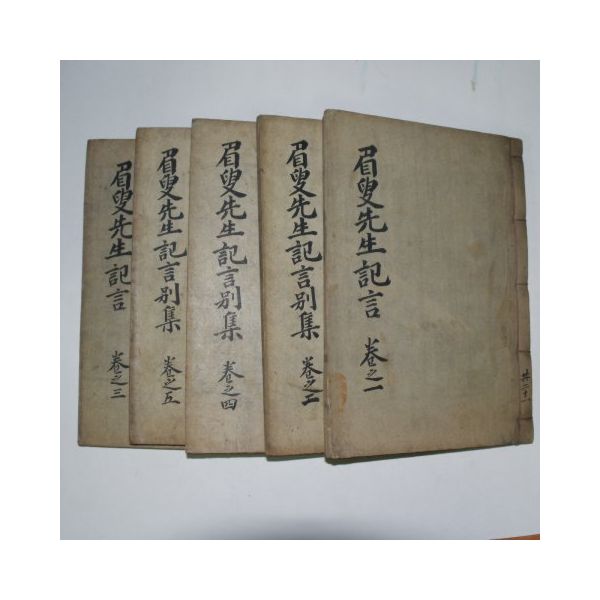 眉叟先生記言 卷之一
共二十一
眉叟先生記言別集 卷之二
眉叟先生記言別集 卷之四
眉叟先生記言別集 卷之五
眉叟先生記言 卷之三